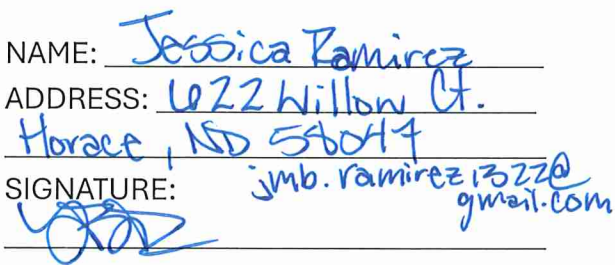 NAME: Jessica Ramirez
ADDRESS: 622 Willow Ct.
Horace, ND 58047
SIGNATURE: jmb.ramirez1322@
gmail.com